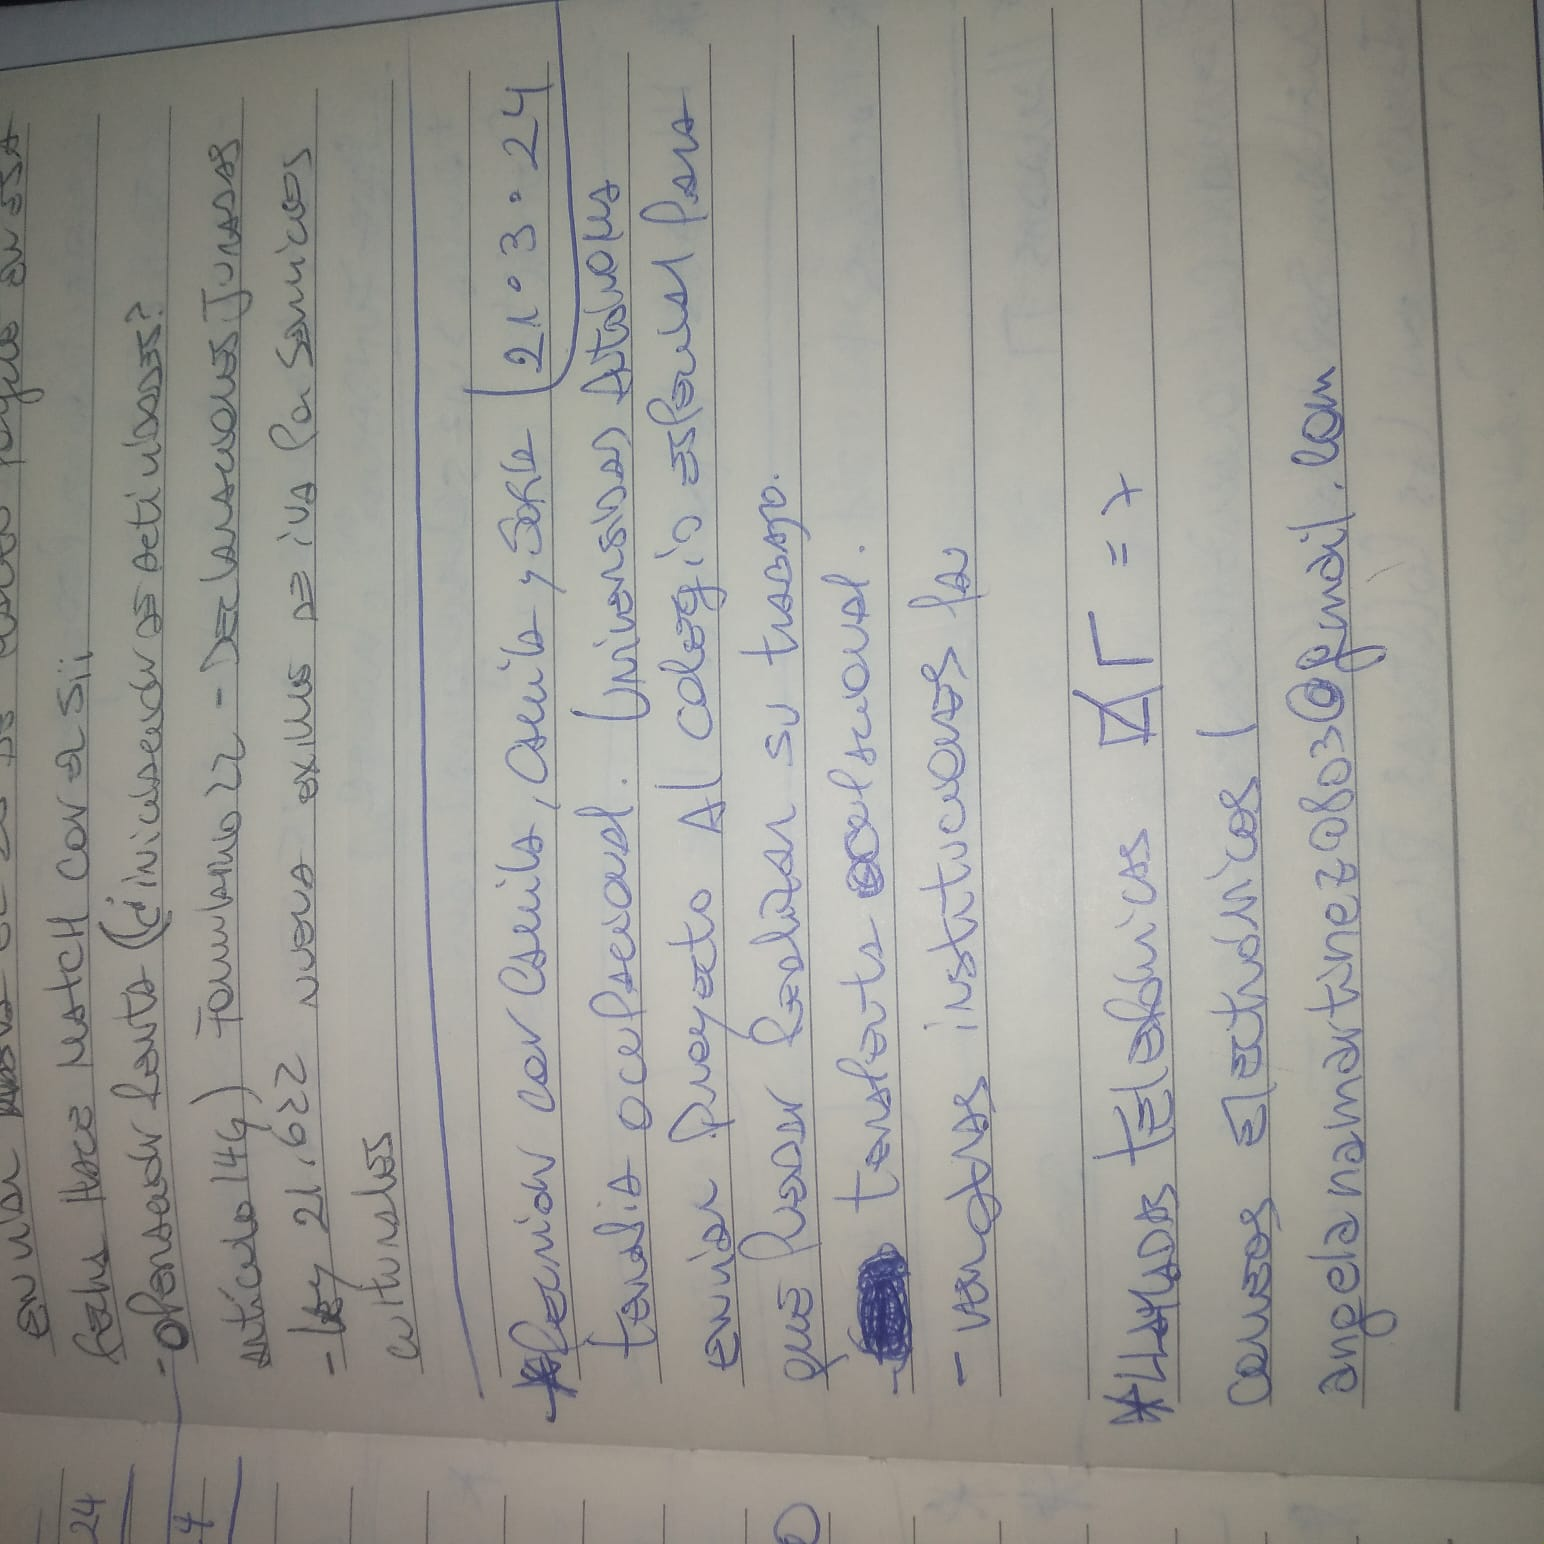 enviar
hace match con el sii
- operación renta (¿iniciación de actividades?
artículo 14g) Formulario 22 - Declaraciones Juradas
- ley 21.622 nueva exime de iva por servicios
culturales
24
4
* Reunión con Camila, Camila y Sofía 21.3.24
terapia ocupacional. Universidad Autónoma
enviar proyecto al colegio especial para
que puedan realizar su trabajo.
- terapeuta ocupacional.
- ver otras instituciones
* llamadas telefónicas
correos electrónicos
angelanamartinez0803@gmail.com